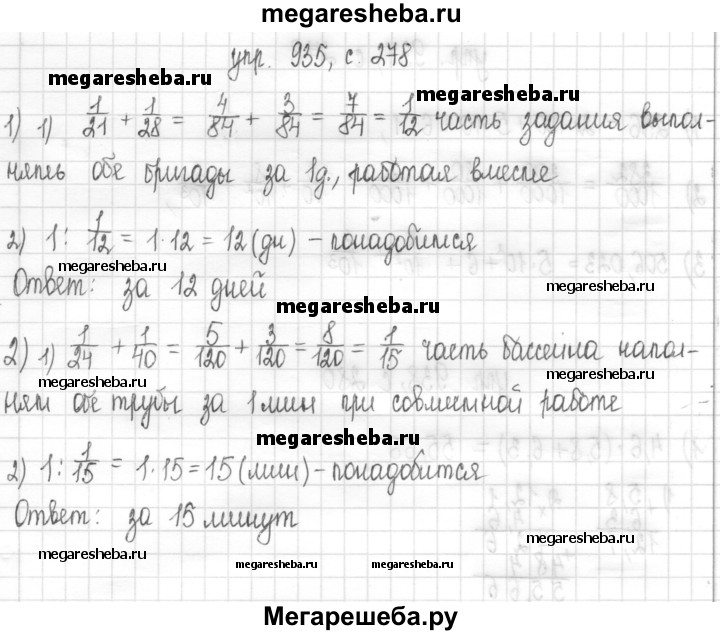 megaresheba.ru
упр. 935, с. 278
megaresheba.ru
megaresheba.ru
1) 1) 1/21 + 1/28 = 4/84 + 3/84 = 7/84 = 1/12 часть задания выпол-
нять обе бригады за 1д., работая вместе
2) 1 : 1/12 = 1·12 = 12 (дн) – понадобится
megaresheba.ru
Ответ: за 12 дней
megaresheba.ru
megaresheba.ru
2) 1) 1/24 + 1/40 = 5/120 + 3/120 = 8/120 = 1/15 часть бассейна напол-
megaresheba.ru
megaresheba.ru
ням обе трубы за 1 мин при совместной работе
megaresheba.ru
2) 1 : 1/15 = 1·15 = 15 (мин) – понадобится
Ответ: за 15 минут
megaresheba.ru
megaresheba.ru
megaresheba.ru
megaresheba.ru
Мегарешеба.ру